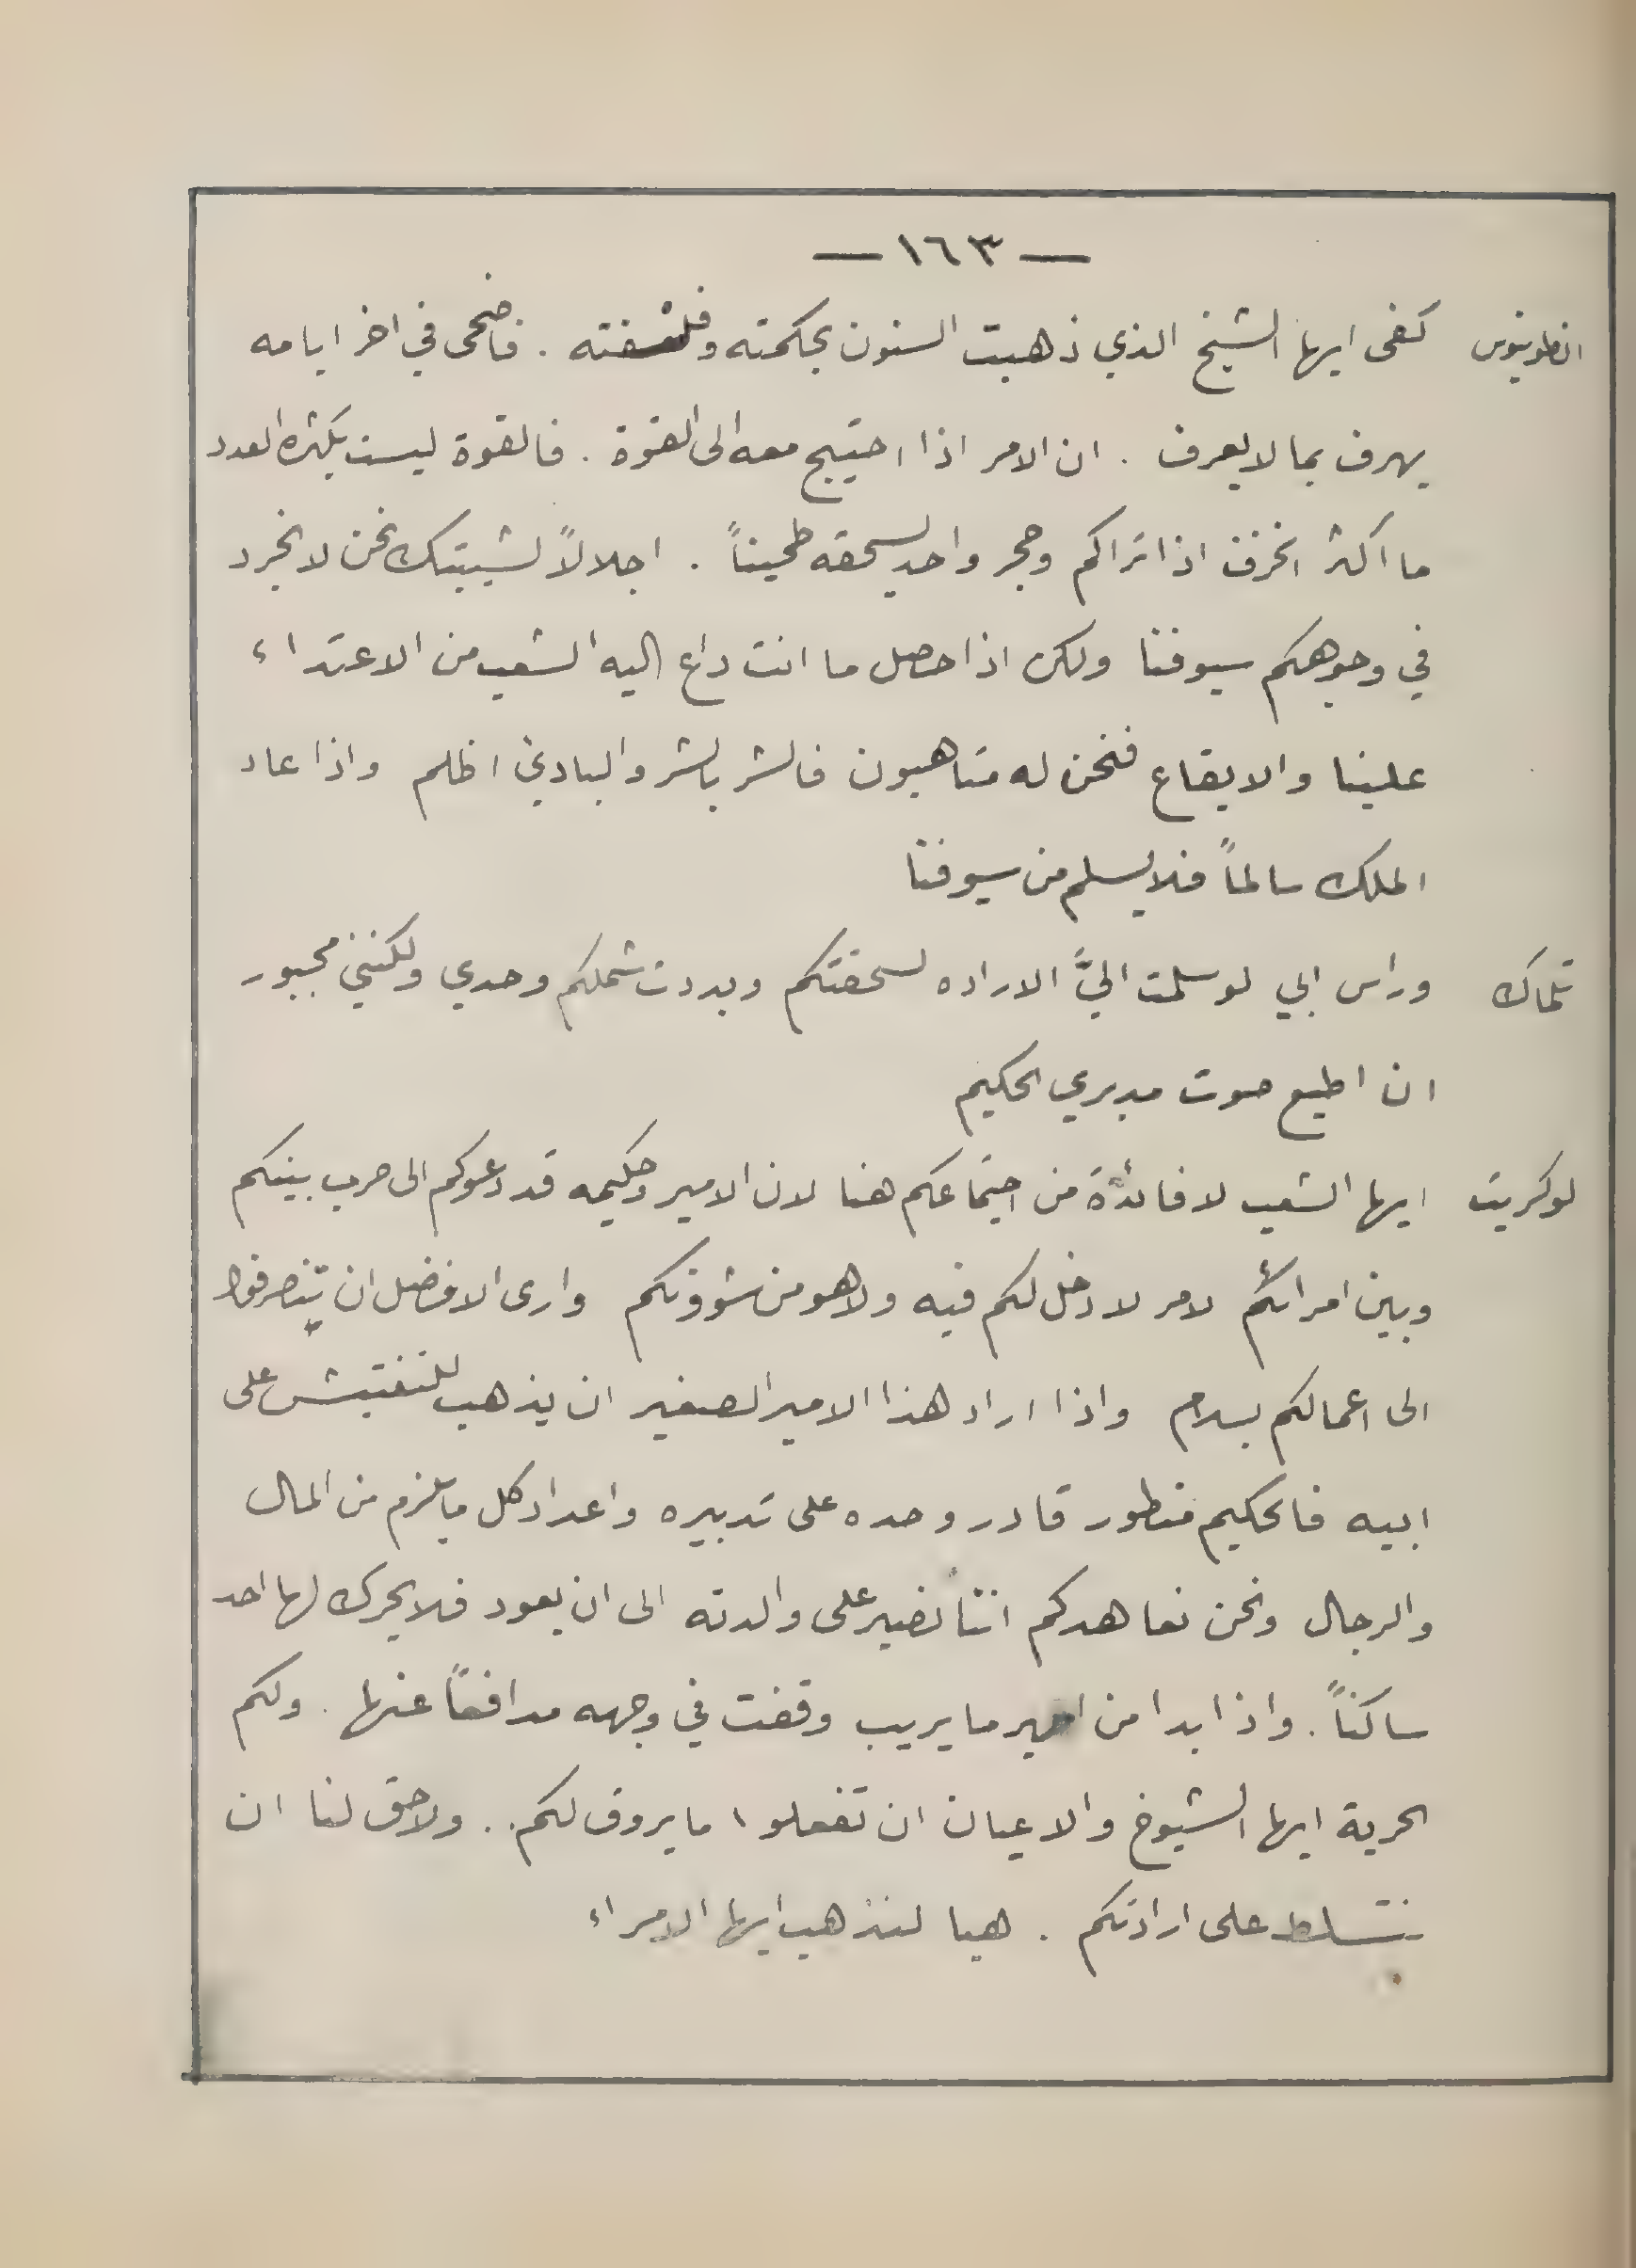 — ١٦٣ —
انطونيوس كفى ايها الشيخ الذي ذهبت السنون بحكمته وفلسفته . فاضحى في اخر ايامه
يهرف بما لا يعرف . ان الامر اذا احتيج معه الى القوة . فالقوة ليست بكثره العدد
ما اكثر الخزف اذا تراكم وحجر واحد يسحقه طحيناً . اجلالاً لشيبتك نحن لا نجرد
في وجوهكم سيوفنا ولكن اذا حصل ما انت داع اليه الشعب من الاعتداء
علينا والايقاع فنحن له متاهبون فالشر بالشر والبادئ اظلم واذا عاد
الملك سالماً فلا يسلم من سيوفنا
تلماك وراس ابي لو سلمت اليَّ الاراده لسحقتكم وبددت شملكم وحدي ولكنني مجبور
ان اطيع صوت مدبري الحكيم
لوكريت ايها الشعب لا فائدة من اجتماعكم هنا لان الامير وحكيمه قد دعوكم الى حرب بينكم
وبين امرائكم لامر لا دخل لكم فيه ولا هو من شوونكم وارى الافضل ان تنصرفوا
الى اعمالكم بسلام واذا اراد هذا الامير الصغير ان يذهب للتفتيش على
ابيه فالحكيم منطور قادر وحده على تدبيره واعداد كل ما يلزم من المال
والرجال ونحن نعاهدكم اننا نصبر على والدته الى ان يعود فلا يحرك لها احد
ساكناً . واذا بدا من امير ما يريب وقفت في وجهه مدافعاً عنها . ولكم
الحرية ايها الشيوخ والاعيان ان تفعلوا ما يروق لكم . . ولا حق لنا ان
نتسلط على ارادتكم . هيا لنذهب ايها الامراء